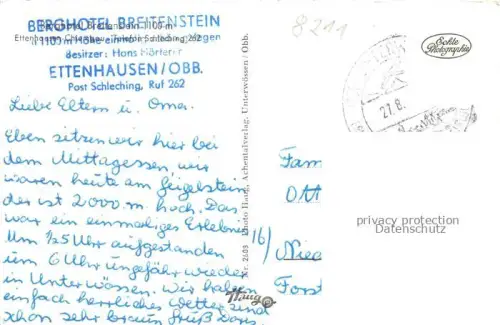 BERGHOTEL BREITENSTEIN
1100 m Höhe einmalig gelegen
Besitzer: Hans Hörterer
ETTENHAUSEN/OBB.
Post Schleching, Ruf 262
8211
Echte
Photographie
27.8.
Liebe Eltern u. Oma.
Eben sitzen wir hier bei
dem Mittagessen, wir
waren heute am Geigelstein
der ist 2000 m hoch. Das
war ein einmaliges Erlebnis
Um 1/25 Uhr aufgestanden
um 6 Uhr ungefähr wieder
in Unterwössen. Wir haben
einfach herrliches Wetter sind
schon sehr braun Gruß Doris
Nr. 2603 Photo Haug, Achentalverlag, Unterwössen / Obb.
Haug
Fam
16/
Nied
Forst
privacy protection
Datenschutz